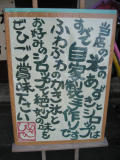 当店の氷のあずきシロップは
すべて自家製手作りです
ふわふわのかき氷と
お好みシロップの絶妙な味を
ぜひご賞味下さい